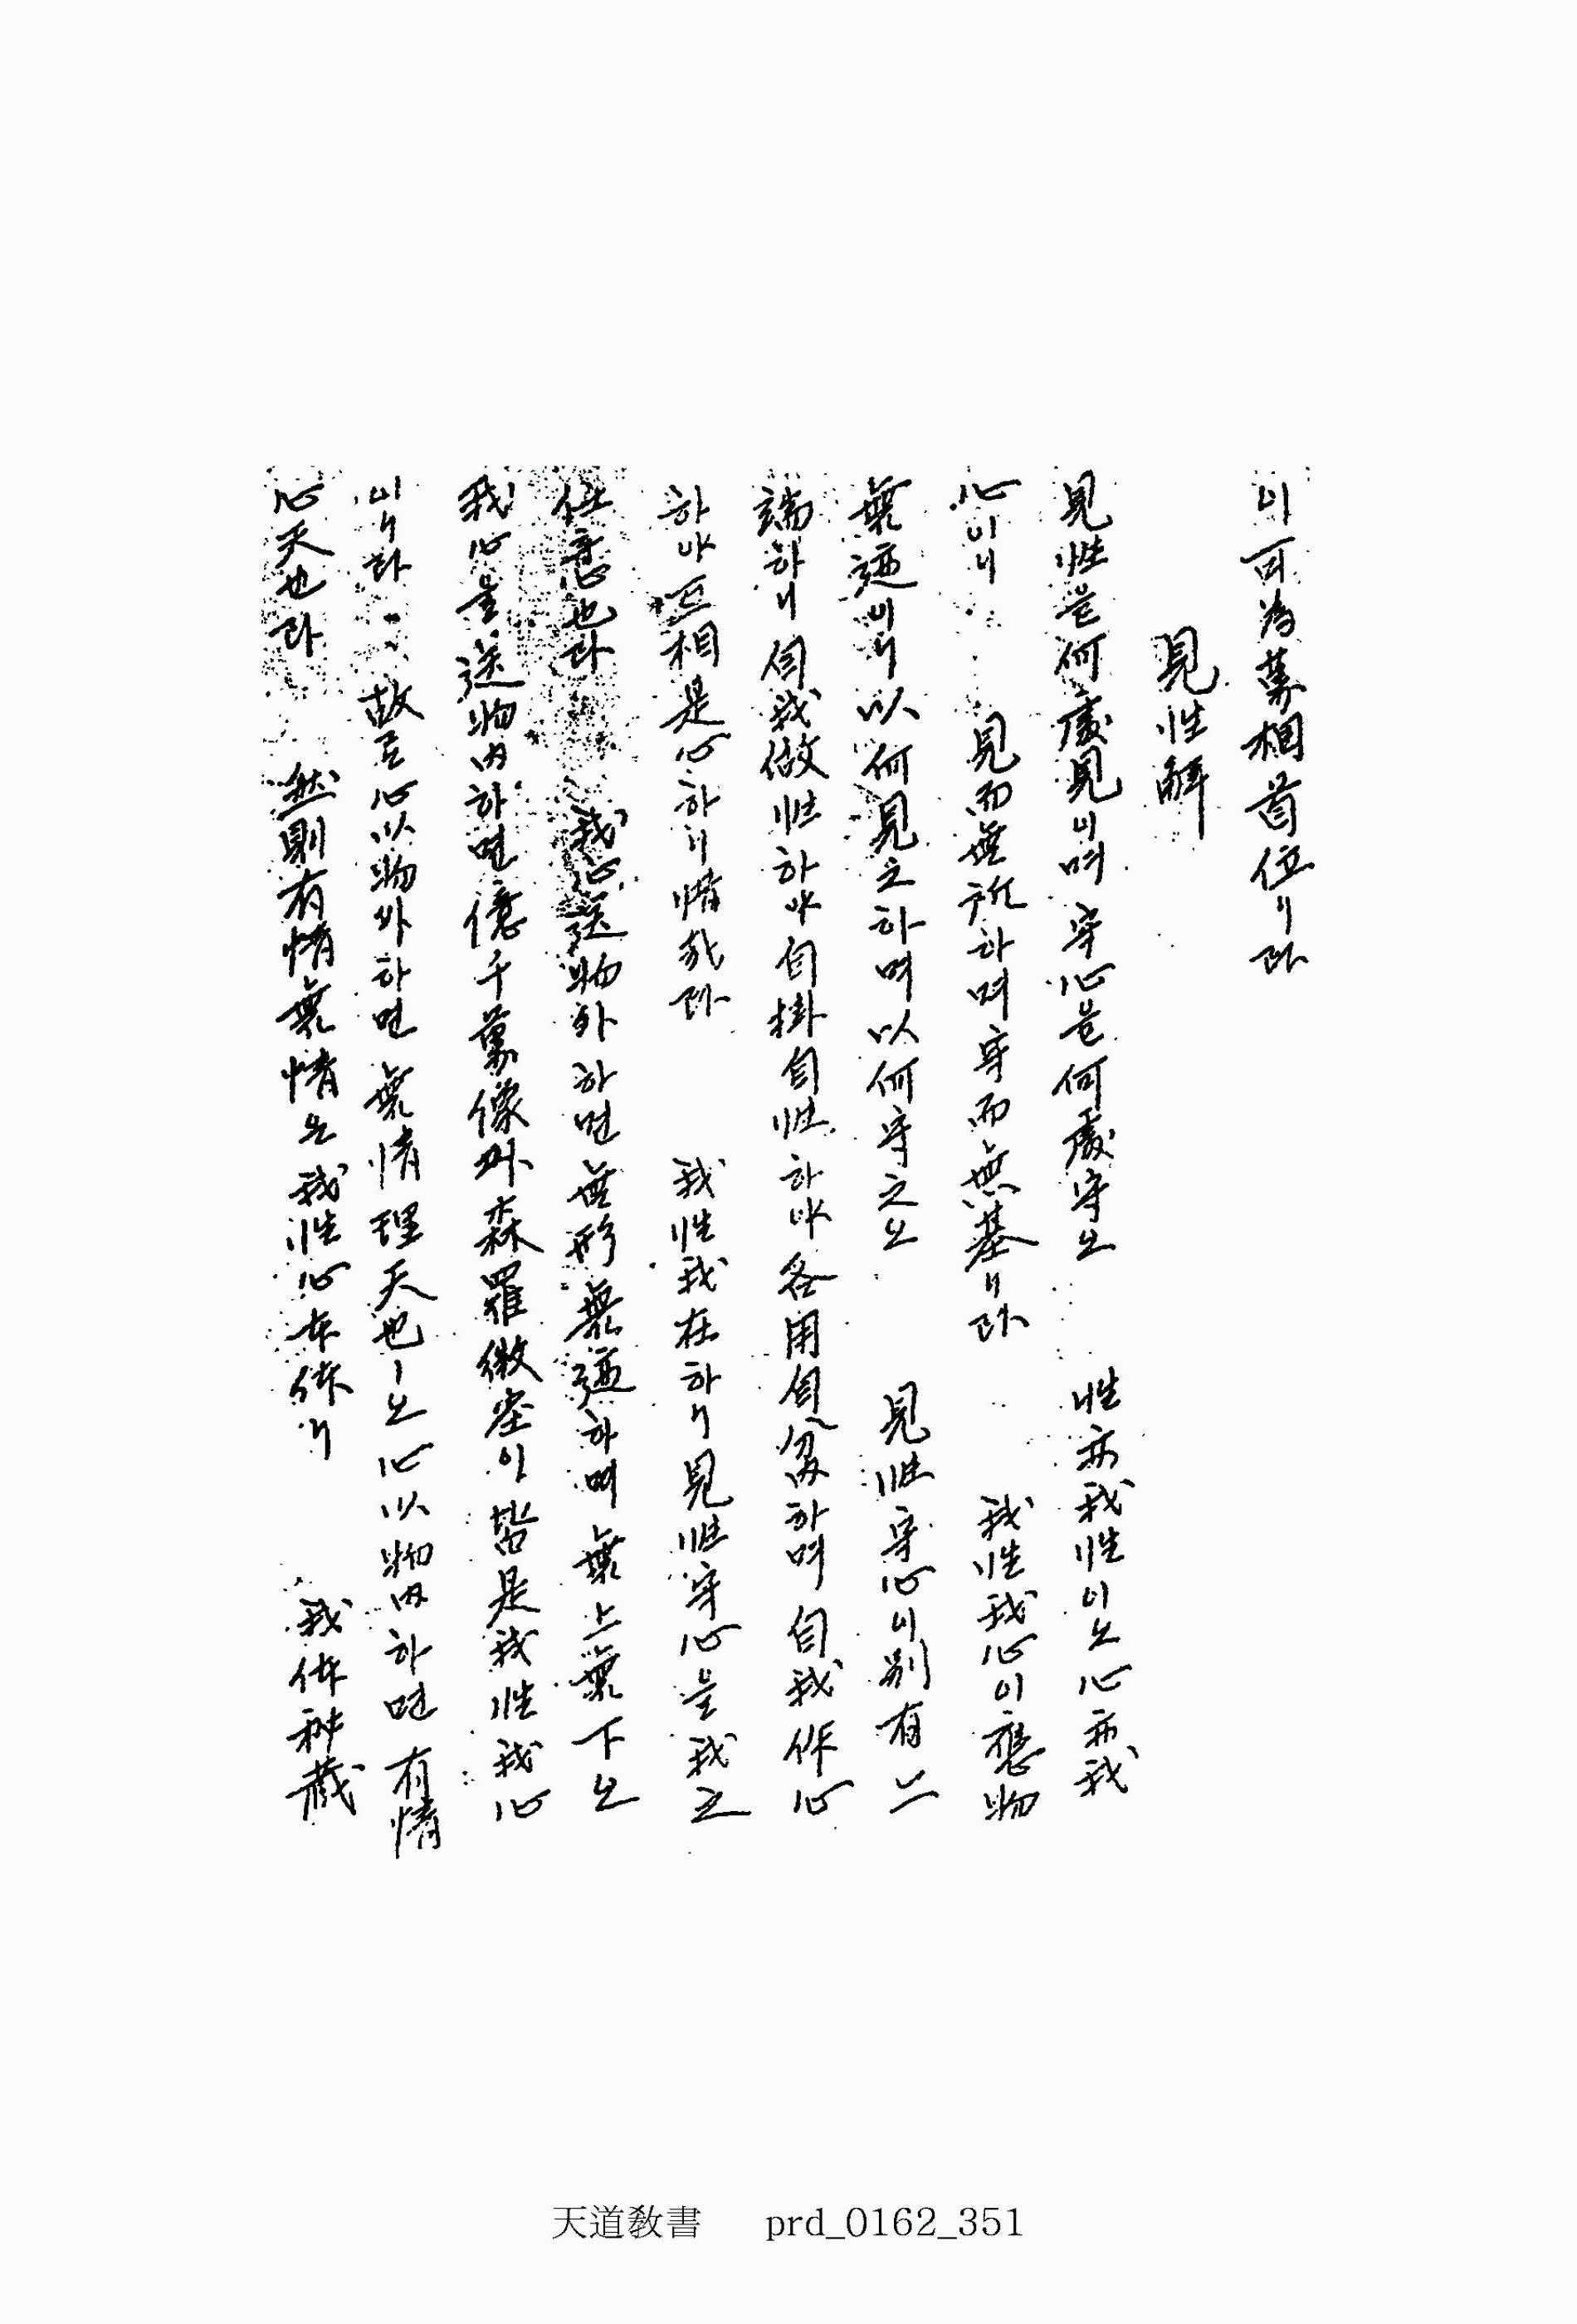 이 可為萬相首位니라
見性解
見性은 何處見이며 守心은 何處守오 性亦我性이오 心亦我
心이니 見而無所하며 守而無基니라 我性我心이 應物
無迹이니 以何見之하며 以何守之오 見性守心이 別有二
端하니 自我做性하야 自掛自性하야 各用自 하며 自我作心
하야 相是心하니 惜哉라 我性我在하니 見性守心을 我之
任意也라 我心送物外하면 無形無迹하며 無上無下오
我心을 送物內하면 億千萬像과 森羅微塵이 皆是我性我心
이니라 故로 心以物外하면 無情理天也ㅣ오 心以物內하면 有情
心天也라 然則有情無情은 我性心本体니 我体秘藏
天道敎書 prd_0162_351